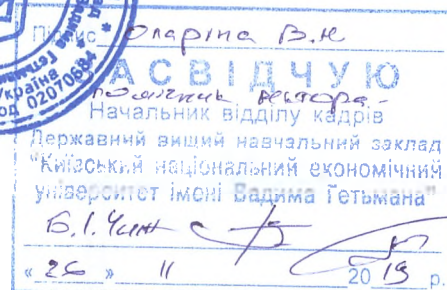 Підпис Опаріна В.М
ЗАСВІДЧУЮ
помічник ректора -
Начальник відділу кадрів
Державний вищий навчальний заклад
"Київський національний економічний
університет імені Вадима Гетьмана"
Б.І.
« 26 » 11 2019 р.
Україна
код 02070884